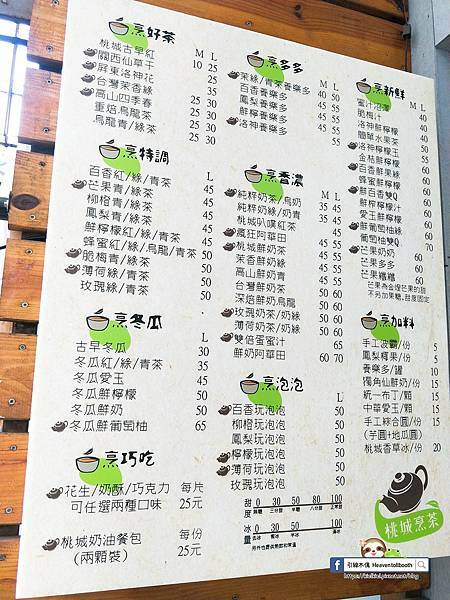 烹好茶
M L
桃城古早紅 10 25
關西仙草干 25
屏東洛神花 25
台灣茉香綠 35
高山四季春 25 30
重焙烏龍茶 25 30
烏龍青/綠茶 25 30
烹特調
L
百香紅/綠/青茶 45
芒果青/綠茶 45
柳橙青/綠茶 45
鳳梨青/綠茶 45
鮮檸檬紅/綠/青茶 45
蜂蜜紅/綠/烏龍/青茶 50
脆梅青/綠茶 50
薄荷綠/青茶 50
玫瑰綠/青茶 50
烹冬瓜
L
古早冬瓜 30
冬瓜紅/綠/青茶 35
冬瓜愛玉 45
冬瓜鮮檸檬 50
冬瓜鮮奶 50
冬瓜鮮葡萄柚 65
烹巧吃
花生/奶酥/巧克力 每片
可任選兩種口味 25元
桃城奶油餐包 每份
(兩顆裝) 25元
烹多多
M L
茉綠/青茶養樂多 40 50
百香養樂多 45 55
鳳梨養樂多 45 55
鮮檸養樂多 45 55
洛神養樂多 45 55
烹香濃
M L
純粹奶茶/烏奶 35 45
純粹奶綠/奶青 35 45
桃城叭噗紅茶 45
瘋狂阿華田
桃城鮮奶茶 45 55
茉香鮮奶綠 45 55
高山鮮奶青 45 55
台灣鮮奶茶 45 55
深焙鮮奶烏龍 50 60
玫瑰奶茶/奶綠 50 60
薄荷奶茶/奶綠 50 60
雙倍蛋蜜汁 65
鮮奶阿華田 60 70
烹泡泡
L
百香玩泡泡 50
柳橙玩泡泡 50
鳳梨玩泡泡 50
檸檬玩泡泡 50
薄荷玩泡泡 50
玫瑰玩泡泡 50
甜度 0 30 50 80 100
冰量 0 30 50 100
烹新鮮
M L
蜜汁沼澤 40
脆梅汁 40
洛神鮮檸檬 50
簡單水果茶 50
洛神檸檬玉 55
金桔鮮檸檬 60
百香鮮果綠 60
蜂蜜鮮檸檬 60
鮮百香雙Q 60
鮮榨檸檬汁 60
愛玉鮮檸檬 60
鮮葡萄柚綠 60
葡萄柚雙Q 70
芒果奶奶 60
芒果多多 60
芒果纖纖 60
芒果為金煌芒果的甜
不另加果糖,甜度固定
烹加料
手工波霸/份 5
鳳梨檡果/份 5
養樂多/罐 10
獨角仙鮮奶/份 15
統一布丁/顆 15
中華愛玉/顆 15
手工綜合圓/份 15
(芋圓+地瓜圓)
桃城香草冰/份 20
桃城烹茶
引線不偶 Heaventollbooth